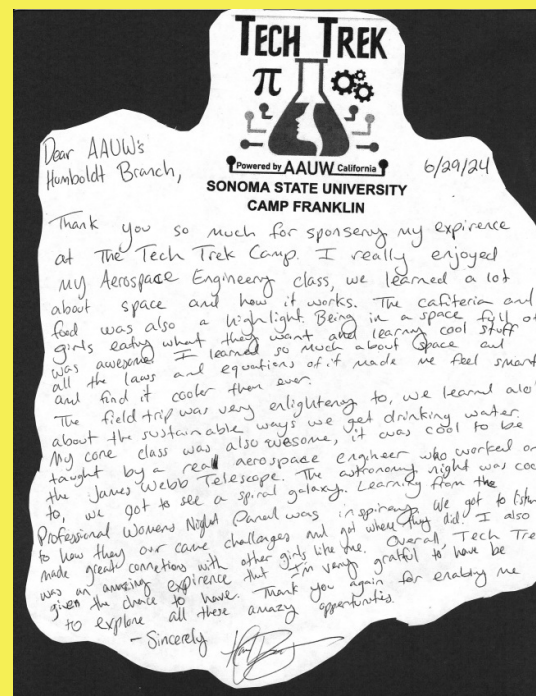 TECH TREK
π
Powered by AAUW California
SONOMA STATE UNIVERSITY
CAMP FRANKLIN
6/29/24
Dear AAUW's
Humboldt Branch,
Thank you so much for sponsery my expirence
at The Tech Trek Camp. I really enjoyed
my Aerospace Engineery class, we learned a lot
about space and how it works. The cafiteria and
food was also a highlight. Being in a space full of
girls eatiny what they want and learny cool stuff
was awesome I learned so much about space and
all the laws and equations of it made me feel smart
and find it cooler then ever.
The field trip was very enlighteny to, we learnd alot
about the sustainable ways we get drinking water.
My core class was also awesome, it was cool to be
taught by a real aerospace engineer who worked on
the James Webb Telescope. The astronomy night was cool
to, we got to see a spiral galaxy. Learning from the
Professional Womens Night Panel was inspirany. We got to listen
to how they our came challenges and got where they did. I also
made great connetions with other girls like me. Overall, Tech Trek
was an amazing expirence that I'm very gratful to have be
given the chance to have. Thank you again for enabling me
to explore all these amazy oppertunities.
- Sincerely